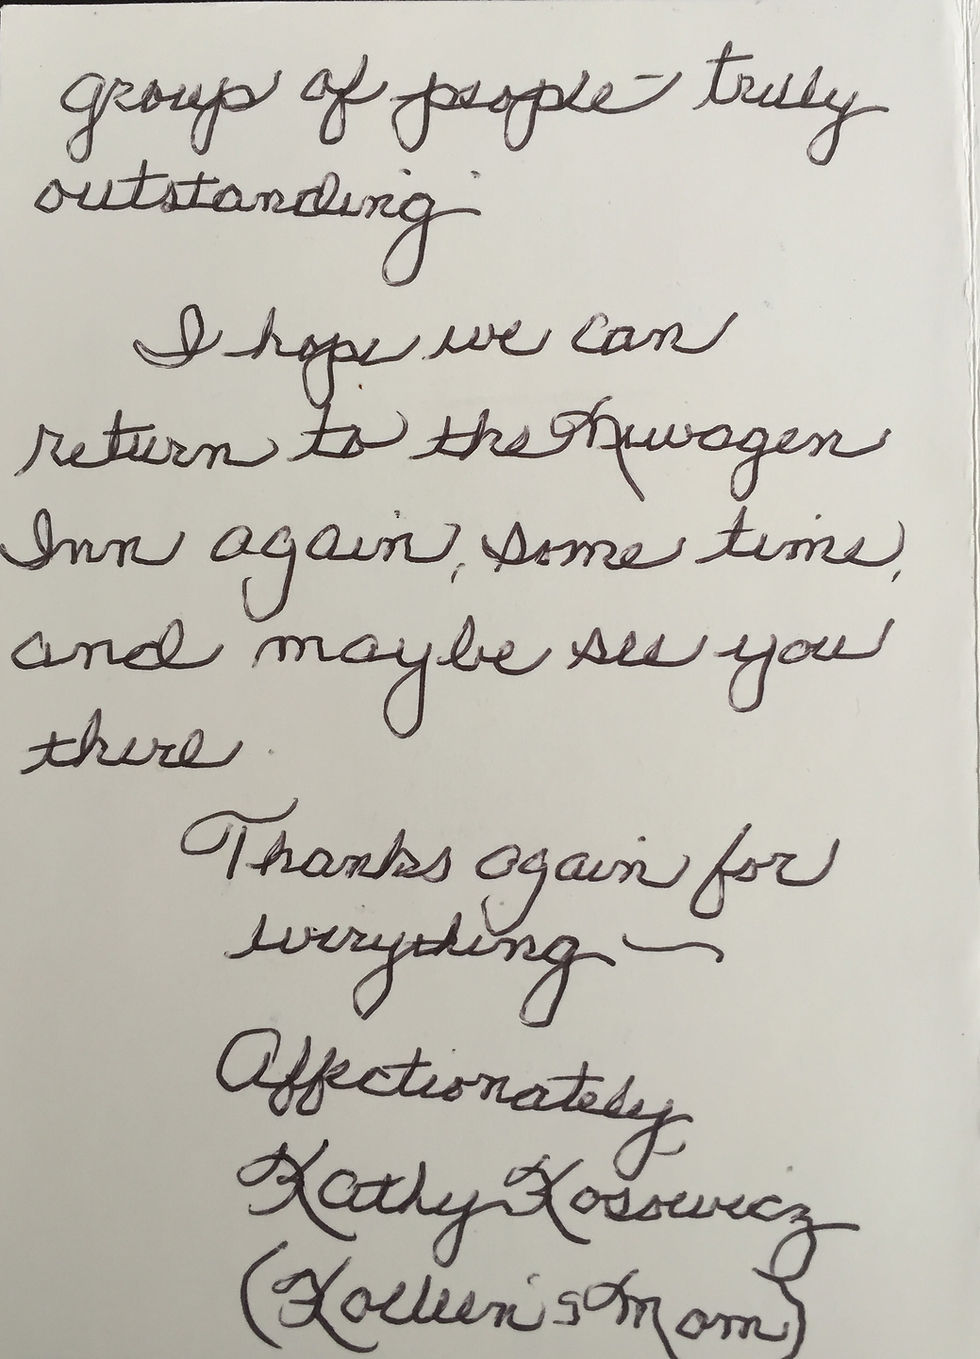 group of people - truly
outstanding.
I hope we can
return to the Newagen
Inn again, some time,
and maybe see you
there.
Thanks again for
everything —
Affectionately
Kathy Kosowicz
(Kolleen's Mom)